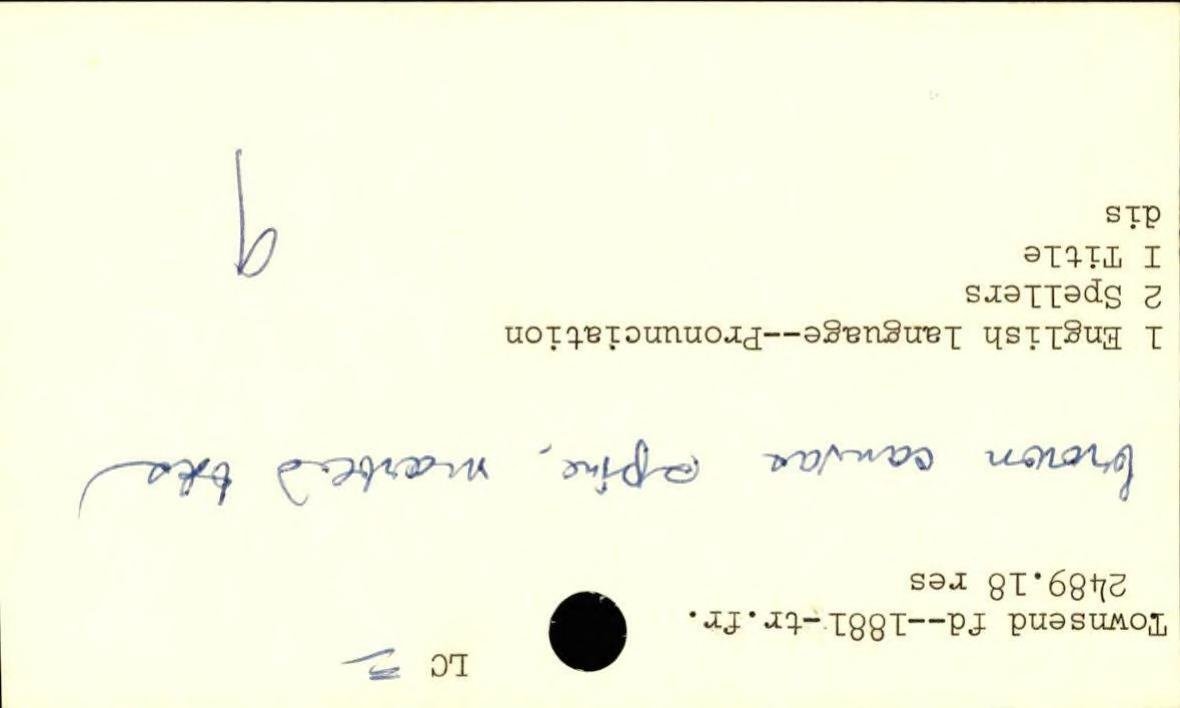 LC
Townsend fd--1881-tr.fr.
2489.18 res
brown canvas spine, marbled
1 English language--Pronunciation
2 Spellers
I Title
dis
9